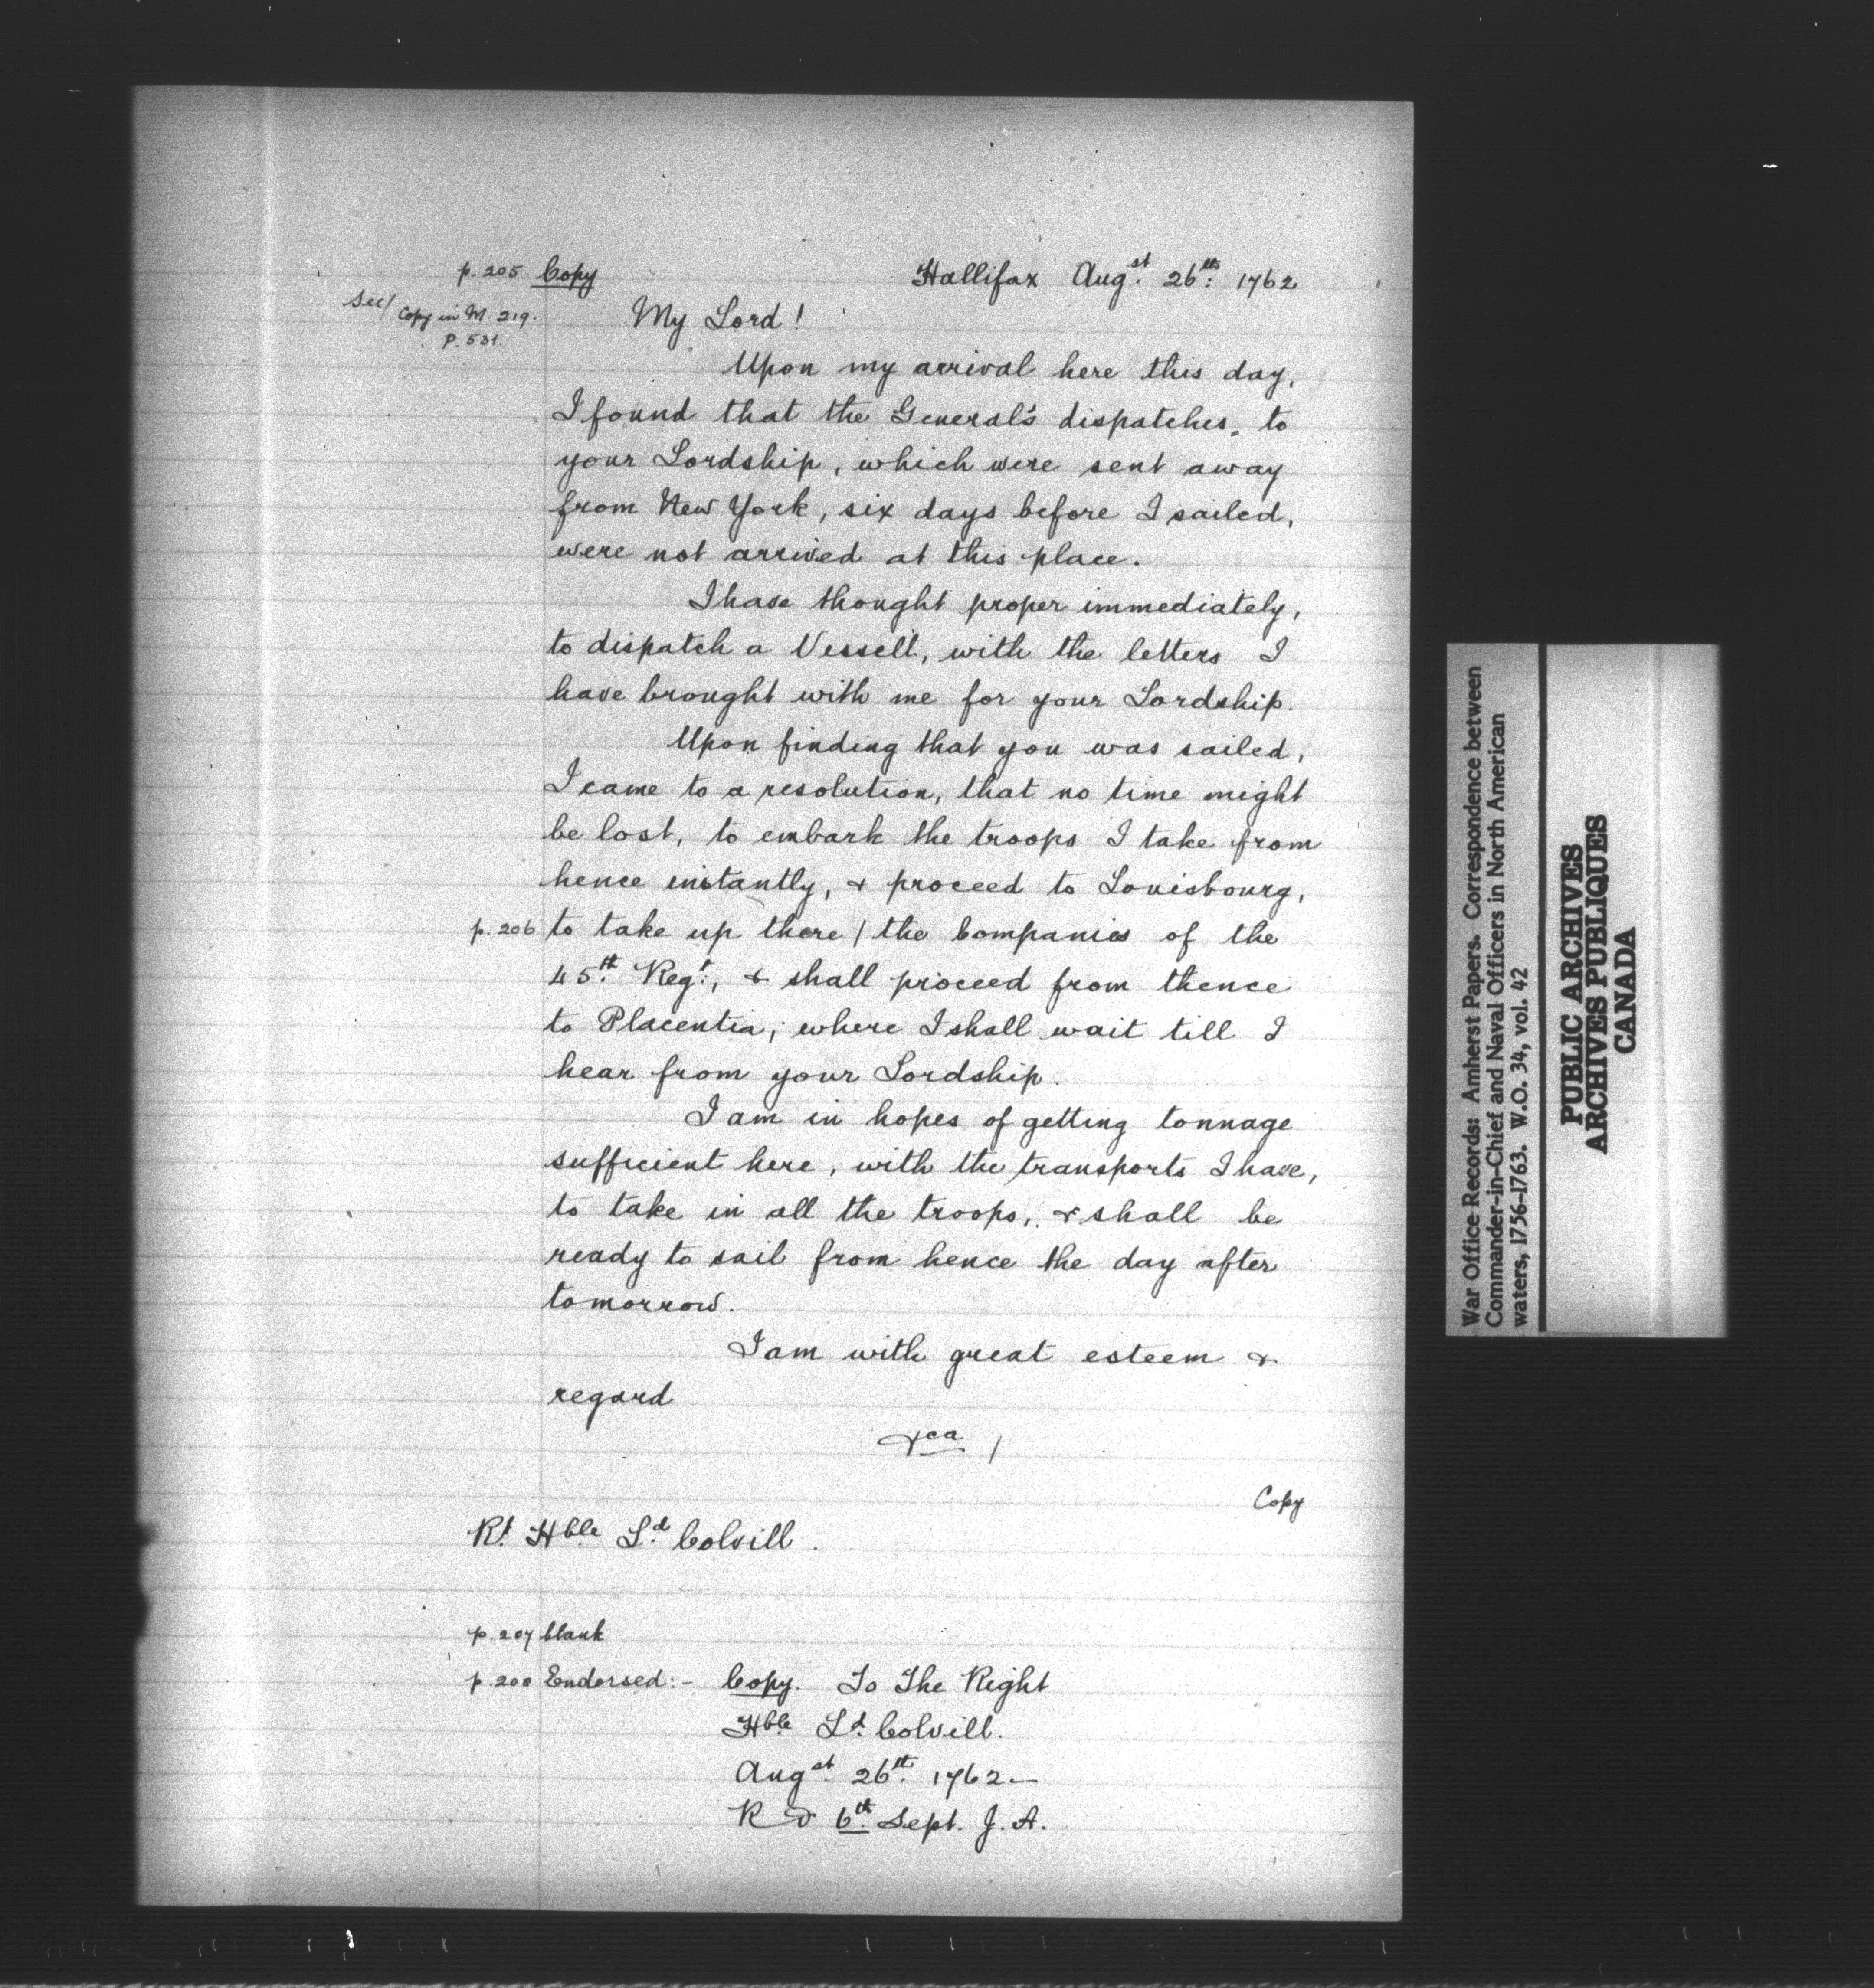 p. 205 Copy Hallifax Aug.st 26th: 1762
See/ Copy in M. 219.
P. 531.
My Lord!
Upon my arrival here this day,
I found that the General's dispatches, to
your Lordship, which were sent away
from New York, six days before I sailed,
were not arrived at this place.
I have thought proper immediately,
to dispatch a Vessell, with the letters I
have brought with me for your Lordship.
Upon finding that you was sailed,
I came to a resolution, that no time might
be lost, to embark the troops I take from
hence instantly, & proceed to Louisbourg,
p. 206 to take up there / the Companies of the
45.th Reg.t, & shall proceed from thence
to Placentia; where I shall wait till I
hear from your Lordship.
I am in hopes of getting tonnage
sufficient here, with the transports I have,
to take in all the troops, & shall be
ready to sail from hence the day after
tomorrow.
I am with great esteem &
regard
&ca /
Copy
Rt. Hble L.d Colvill.
p. 207 blank
p. 208 Endorsed:- Copy. To The Right
Hble L.d Colvill.
Aug.st 26.th 1762—
R d 6.th Sept. J. A.
War Office Records: Amherst Papers. Correspondence between
Commander-in-Chief and Naval Officers in North American
waters, 1756-1763. W.O. 34, vol. 42
PUBLIC ARCHIVES
ARCHIVES PUBLIQUES
CANADA